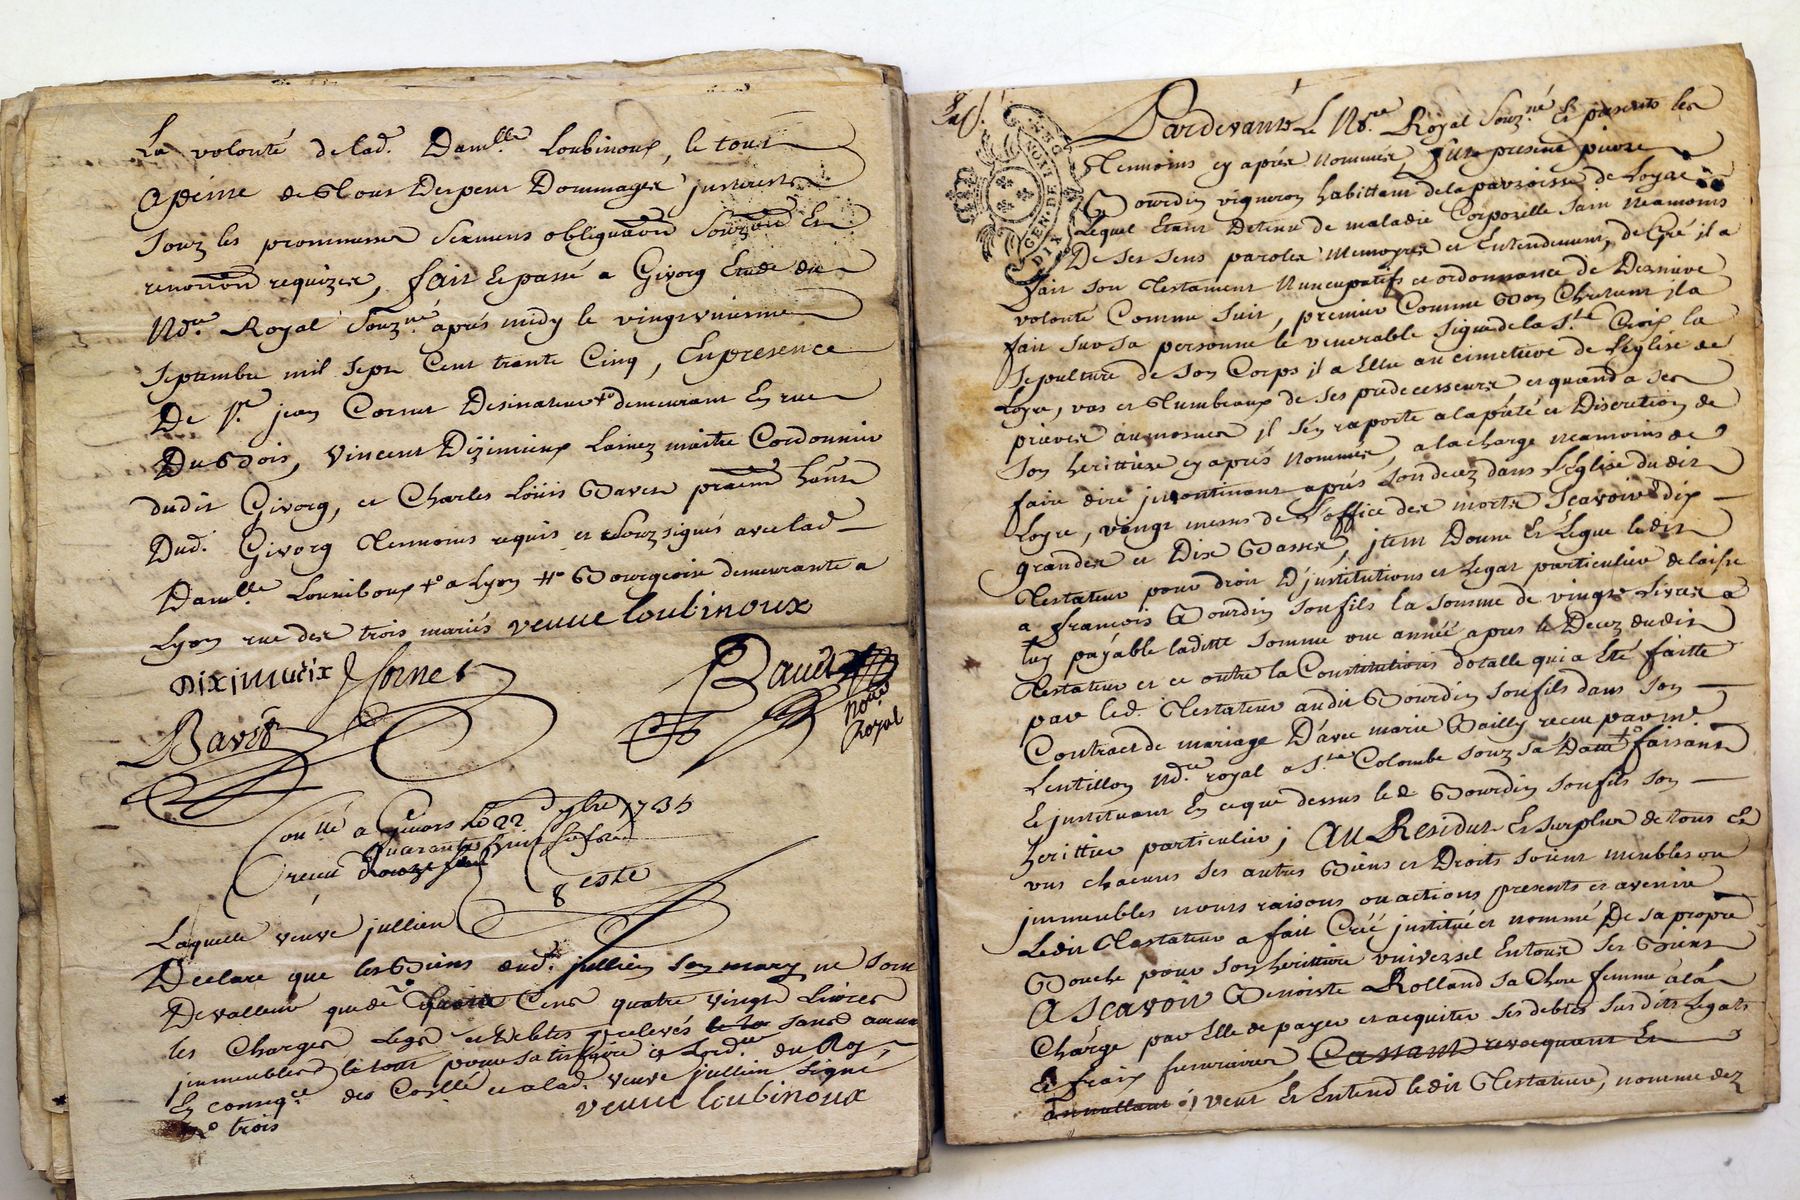 La volonté de lad. Damlle Loubinoux, le tout
a peine de tous Despens Dommages jnterests
souz les promesses sermens obligaōn soūzōn Et
renonōn requizes, fait Et passé a Givorg Etude du
Ndre Royal souzné après midy le vingtuniesme
septembre mil sept Cent trante Cinq, En presence
De Sr jean Cornut Desinateur +° demeurant En rue
Du Bois, Vincent Diximieux Lainez maitre Cordonnier
dudit Givorg, et Charles Loüis Bavet
Dud. Givorg Temoins requis et souzsignés avec lad
Damlle Louniboux +° a Lyon ++° Bourgeoise demeurante a
Lyon rue des trois mariés veuue loubinoux
Diximieix JCornet
Bavet
Baudi
Nore
Royal
Conllé a Givors le 22 7bre 1735
Quarante huit
receu Douze sols
Geste
Laquelle veuve jullien
Declare que les Biens dud. jullien son mary ne sont
De valleur que de Cens quatre vingt Livres
les Charges Legs et Debtes relevés sans aucun
jmmeubles le tout pour satisfaire a Lordce du Roy,
En conseqce des Coñllé et a lad. veuve jullien signé
veuue loubinoux
trois
GEN. DE LYON
DIX DEN.
Pardevant Le Ndre Royal Souzné Et presents les
Temoins cy après nommés, fut presens pierre
Gourdin vigneron habittant de la parroisse de Loyre
Lequel Etant Detenu de maladie Corporelle sain neamoins
De ses sens parolle memoyre et Entendement, de Gré il a
fait son Testament Nuncupatif et ordonnance de Derniere
volonté Comme suit, premier Comme Bon Chretient jl a
fait sur sa personne le venerable signe de la Ste Croix la
sepulture de son Corps il a Elue au cimetiere de l'église de
Loyre, vas et Tumbeaux de ses predecesseurs et quand a ses
prieres aumosnes jl s'en raporte a la pieté et Discretion de
son herittiere cy après nommée, a la charge neamoins de
faire dire jncontinant après son decez dans L'église dudit
Loyre, vingt messes de L'office des morts Scavoir dix
grandes et Dix Basses, jtem Donne Et Legue ledit
Testateur pour droit D'jnstitutions et Legat particulier delaisse
a françois Gourdin son fils la somme de vingt Livres a
luy payable laditte somme une année après le Decez dudit
Testateur et ce outre la Constitutions dotalle qui a Eté faitte
par led. Testateur audit Gourdin son fils dans son
Contract de mariage D'avec marie Bailly receu par me
Lentillon Ndre royal a Ste Colombe souz sa Datte faisant
Et jnstituant En ce que dessus led Gourdin son fils son
herittier particulier; AU Residut Et surplus de tous Et
uns chacuns ses autres Biens et Droits soient meubles ou
jmmeubles noms raisons ou actions presents et avenir
Ledit Testateur a fait Créé jnstitué et nommé De sa propre
Bouche pour son herittiere universel En tous ses Biens
A Scavoir Benoiste Rolland sa Chere femme a la
Charge par Elle de payer et acquiter ses debtes susdits Legats
Et fraix funeraires Cassant revocquant Et
annullant veut Et Entend ledit Testateur, nommé dez